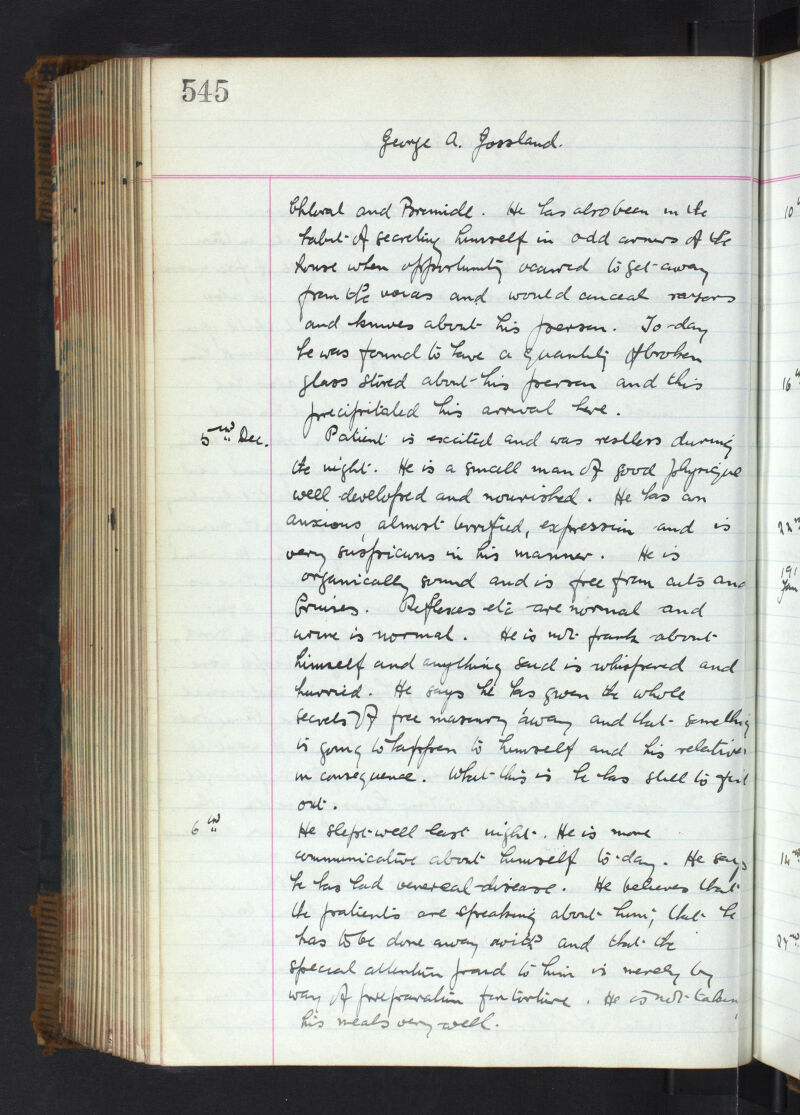 545
George A. Gossland.
Chloral and Bromide. He has also been in the
habit of secreting himself in odd corners of the
house when opportunity occurred to get away
from the voices and would conceal razors
and knives about his person. To-day
he was found to have a quantity of broken
glass stored about his person and this
precipitated his arrival here.
5th Dec. Patient is excited and was restless during
the night. He is a small man of good physique
well developed and nourished. He has an
anxious, almost terrified, expression and is
very suspicious in his manner. He is
organically sound and is free from cuts and
bruises. Reflexes etc are normal and
urine is normal. He is not frank about
himself and anything said is whispered and
hurried. He says he has given the whole
secrets of free masonry away and that something
is going to happen to himself and his relatives
in consequence. What this is he has still to find
out.
6th He slept well last night. He is more
communicative about himself to-day. He says
he has had venereal disease. He believes that
the patients are speaking about him; that he
has to be done away with and that the
special attention paid to him is merely by
way of preparation for torture. He is not taking
his meals very well.
10
16
22
191
Jan
14
24